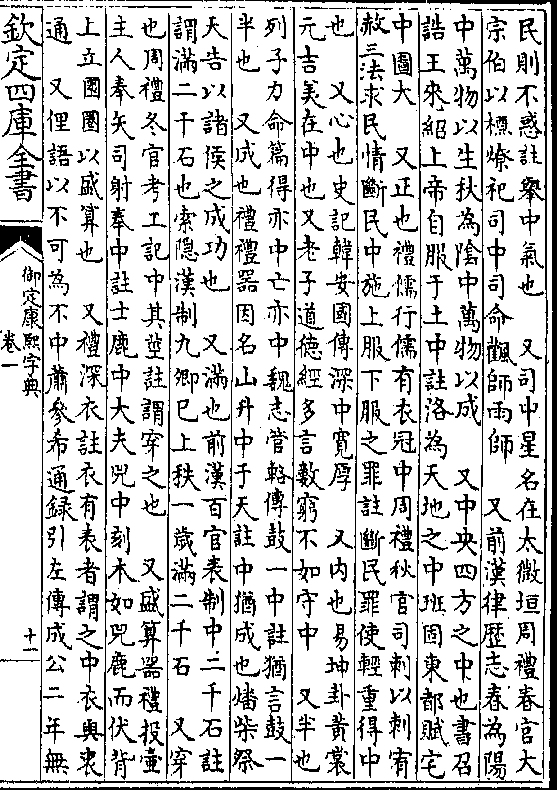 民則不惑註舉中氣也　又司中星名在太微垣周禮春官大
宗伯以槱燎祀司中司命飌師雨師　又前漢律歷志春為陽
中萬物以生秋為陰中萬物以成　又中央四方之中也書召
誥王來紹上帝自服于土中註洛為天地之中班固東都賦宅
中圖大　又正也禮儒行儒有衣冠中周禮秋官司刺以刺宥
赦三法求民情斷民中施上服下服之罪註斷民罪使輕重得中
也　又心也史記韓安國傳深中寬厚　又內也易坤卦黃裳
元吉美在中也又老子道德經多言數窮不如守中　又半也
列子力命篇得亦中亡亦中魏志管輅傳鼓一中註猶言鼓一
半也　又成也禮禮器因名山升中于天註中猶成也燔柴祭
天告以諸侯之成功也　又滿也前漢百官表制中二千石註
謂滿二千石也索隱漢制九卿已上秩一歲滿二千石　又穿
也周禮冬官考工記中其莖註謂穿之也　又盛算器禮投壺
主人奉矢司射奉中註士鹿中大夫兕中刻木如兕鹿而伏背
上立圓圈以盛算也　又禮深衣註衣有表者謂之中衣與衷
通　又俚語以不可為不中蕭參希通錄引左傳成公二年無
欽定四庫全書
御定康熙字典
卷一
十一